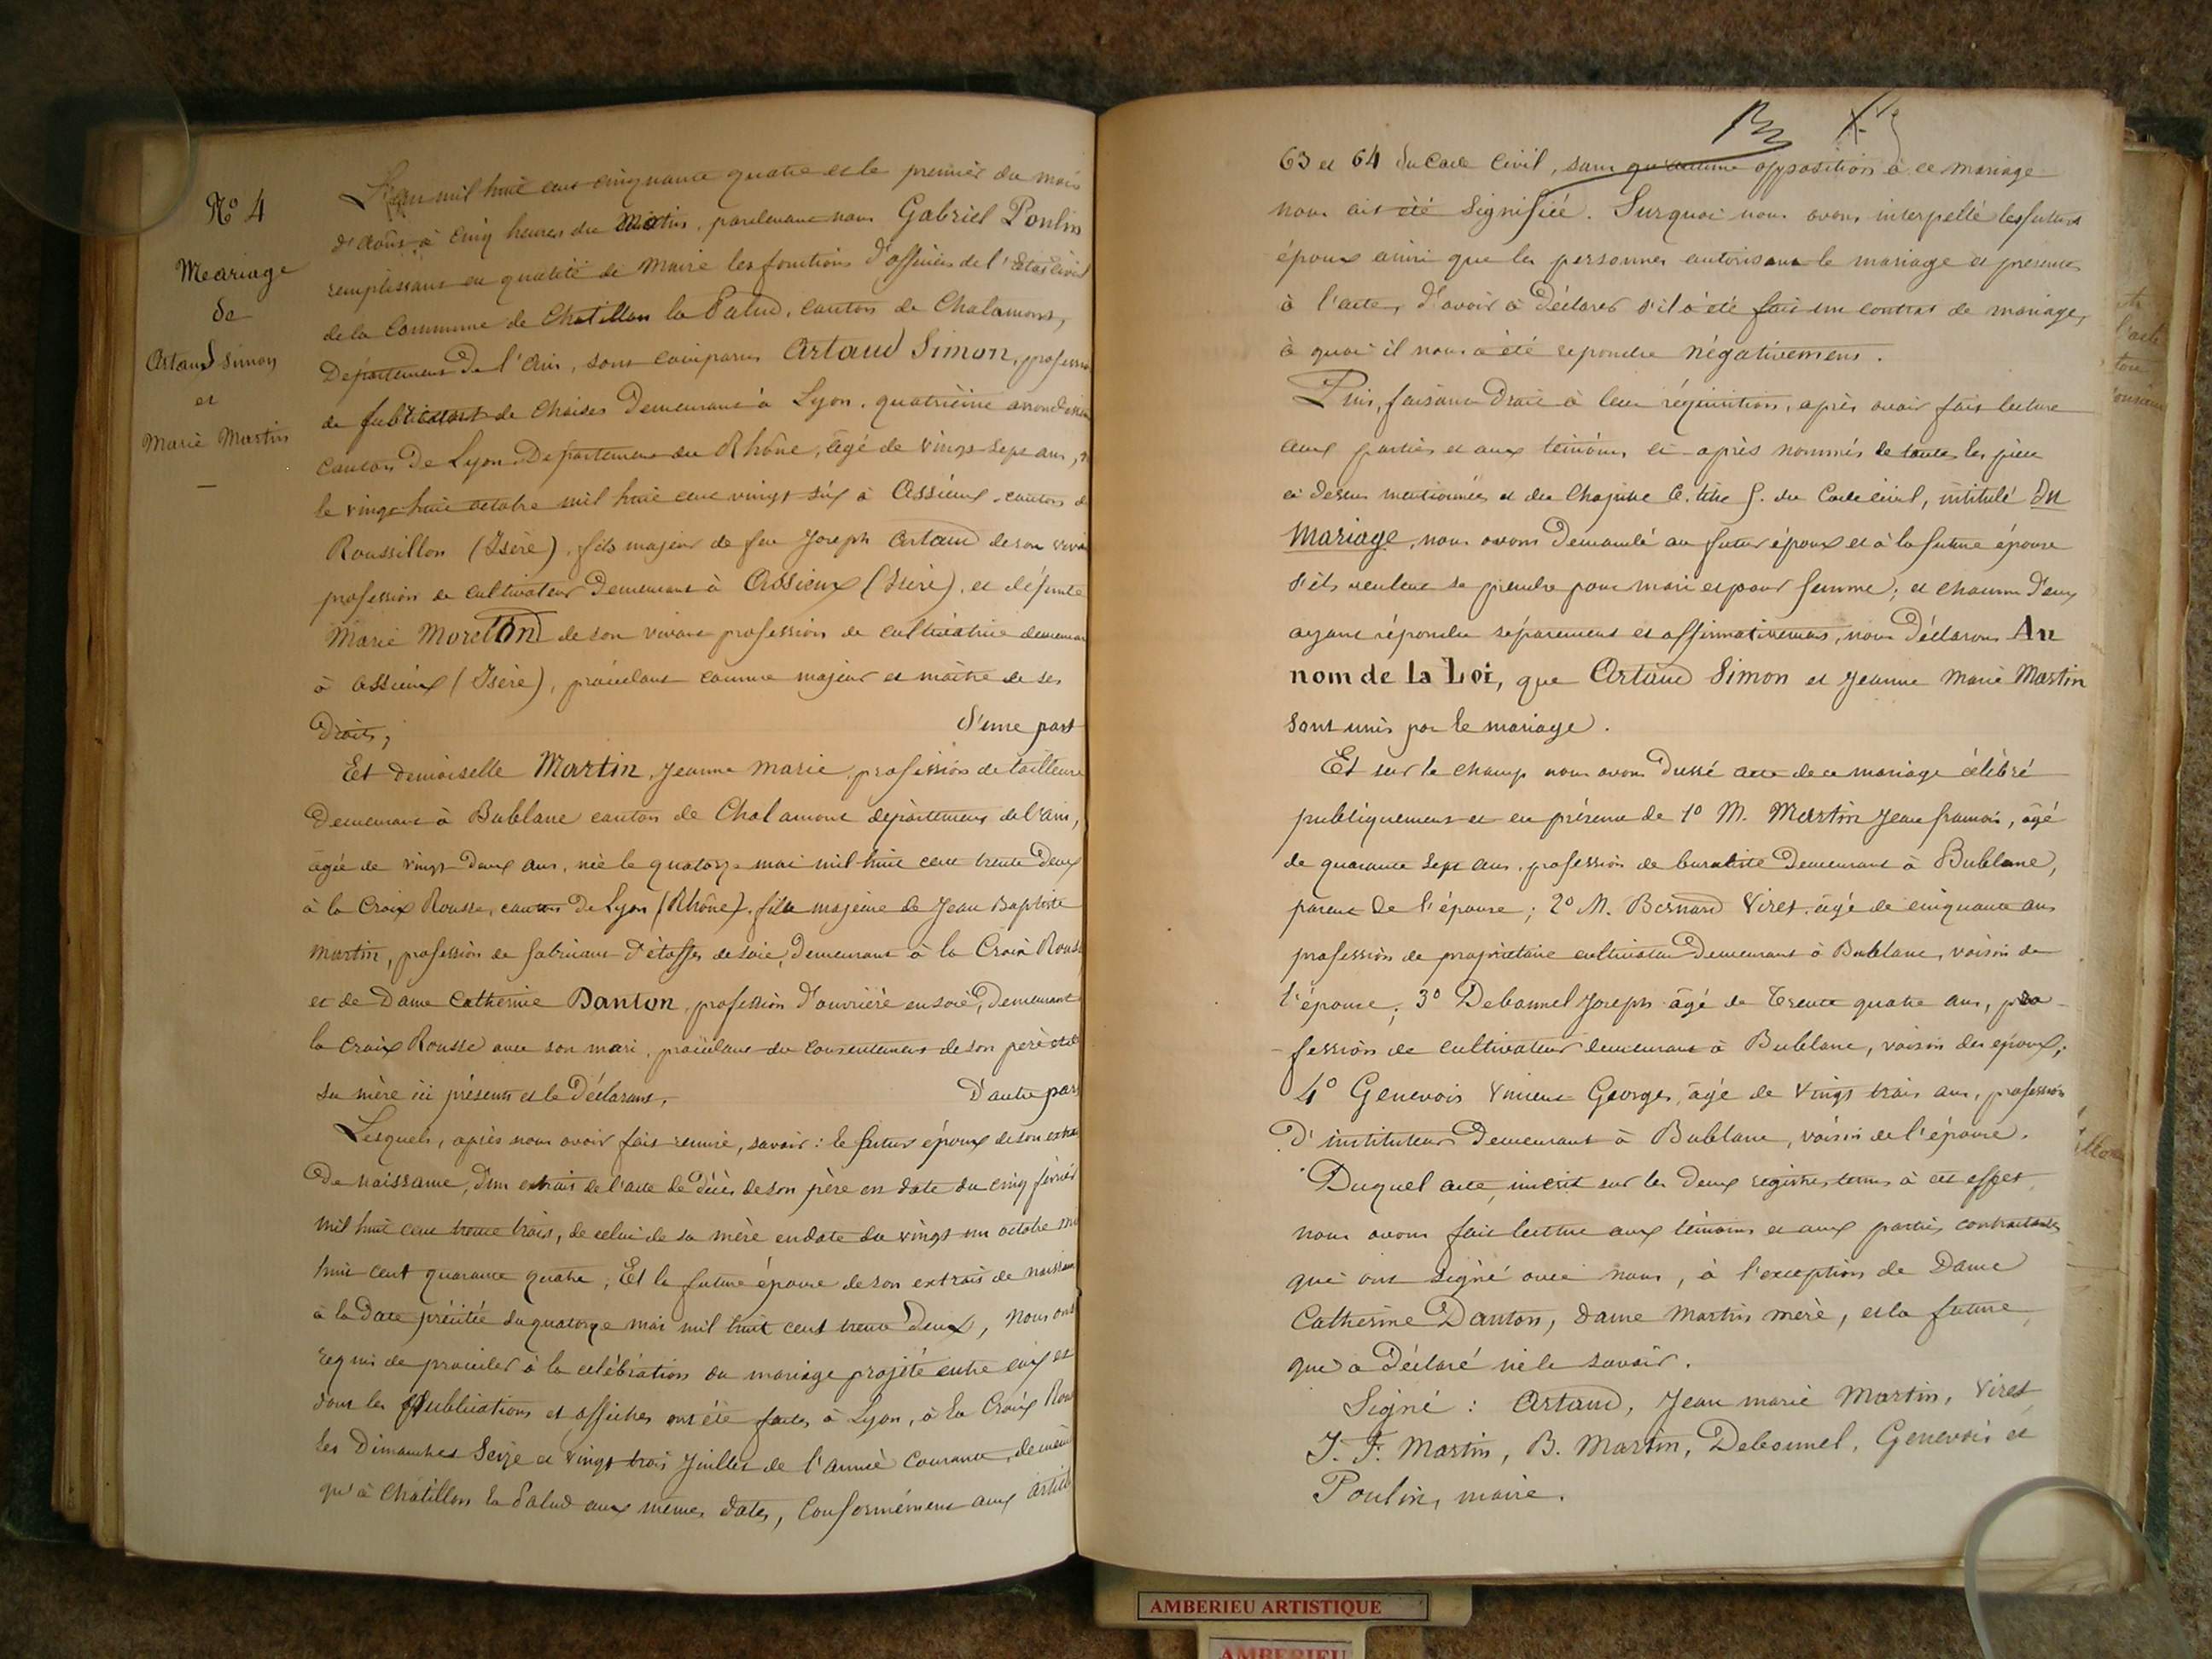 N° 4
Mariage
de
Artaud Simon
et
Marie Martin
L'an mil huit cent cinquante quatre et le premier du mois
d'Août à cinq heures du Matin, pardevant nous Gabriel Poulin
remplissant en qualité de Maire les fonctions d'officier de l'Etat Civil
de la Commune de Chatillon la Palud, canton de Chalamont,
Département de l'Ain, sont comparus Artaud Simon, profession
de fabricant de Chaises Demeurant à Lyon, quatrième arrondissem
canton de Lyon, Département du Rhône, âgé de vingt-sept ans, n
le vingt-huit octobre mil huit cent vingt six à Assieux, canton d
Roussillon (Isère), fils majeur de feu Joseph Artaud de son viva
profession de cultivateur Demeurant à Assieux (Isère), et défunte
Marie Moretond de son vivant profession de cultivatrice demeuran
à Assieux (Isère), procédant comme majeur et maître de ses
Droits; d'une part
Et demoiselle Martin, Jeanne Marie, profession de tailleuse
Demeurant à Bublane canton de Chalamont département de l'ain,
âgée de vingt-deux ans, née le quatorze mai mil huit cent trente Deux
à la Croix Rousse, canton de Lyon (Rhône), fille majeure de Jean Baptiste
Martin, profession de fabricant d'étoffes de soie, Demeurant à la Croix Rouss
et de Dame Catherine Danton, profession d'ouvrière en soie, Demeurant
la Croix Rousse avec son mari, procédant du consentement de son père et de
sa mère ici présents et le Déclarant, D'autre part
Lesquels, après nous avoir fait remise, savoir: le futur époux de son extra
De naissance, d'un extrait de l'acte de décès de son père en date du cinq février
mil huit cent trente trois, de celui de sa mère en date du vingt un octobre mi
huit cent quarante quatre, Et la future épouse de son extrait de naissan
à la Date précitée du quatorze mai mil huit cent trente Deux, Nous ont
requis de procéder à la célébration du mariage projeté entre eux et
dont les Publications et affiches ont été faites à Lyon, à la Croix Rou
les Dimanches Seize et Vingt trois Juillet de l'année Courante, de mem
qu'à Chatillon la Palud aux mêmes dates, Conformément aux articl
63 et 64 du Code Civil, sans qu'aucune opposition à ce mariage
nous ait été Signifiée. Surquoi nous avons interpellé les futurs
époux ainsi que les personnes autorisant le mariage et présentes
à l'acte, d'avoir à Déclarer s'il a été fait un contrat de mariage,
à quoi il nous a été répondu Négativement.
Puis, faisant Droit à leur réquisition, après avoir fait lecture
aux parties et aux témoins ci-après nommés de toutes les pièces
ci dessus mentionnées et du Chapitre 6. titre 5. du Code civil, intitulé Du
Mariage, nous avons Demandé au futur époux et à la future épouse
s'ils veulent se prendre pour mari et pour femme; et chacun d'eux
ayant répondu séparément et affirmativement, nous Déclarons Au
nom de la Loi, que Artaud Simon et Jeanne Marie Martin
sont unis par le mariage.
Et sur le champ nous avons Dressé acte de ce mariage célébré
publiquement et en présence de 1° M. Martin Jean françois, âgé
de quarante Sept ans, profession de buraliste Demeurant à Bublane,
parent de l'épouse; 2° M. Bernard Viret, âgé de cinquante ans
profession de propriétaire cultivateur Demeurant à Bublane, voisin de
l'épouse; 3° Debounel Joseph âgé de Trente quatre ans, pro-
-fession de cultivateur demeurant à Bublane, voisin des époux;
4° Genevois Vincent Georges, âgé de Vingt trois ans, profession
D'instituteur Demeurant à Bublane, voisin de l'épouse.
Duquel acte, inscrit sur les Deux registres tenus à cet effet
nous avons fait lecture aux témoins et aux parties contractantes
qui ont Signé avec nous, à l'exception de Dame
Catherine Danton, dame Martin mère, et la future
qui a Déclaré ne le savoir.
Signé: Artaud, Jean marie Martin, Viret
J. F. Martin, B. Martin, Debounel, Genevois et
Poulin, maire.
AMBERIEU ARTISTIQUE
AMBERIEU